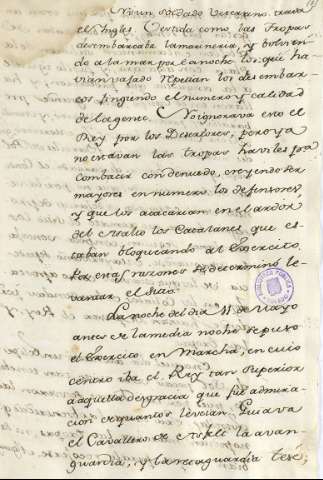 Ni un soldado Viscayno traxa
el Ingles. Vestida como las Tropas
desembarcaba la marineria, y bolvien
do a la mar por la noche los que ha
vian vajado repetian los desembar
cos fingiendo el numero y calidad
de la gente. No ignorava esto el
Rey por los Desertores, pero ya
no estavan las tropas haviles pra
combatir con denuedo, creyendo ser
mayores en numero los defensores,
y que los atacarian en el ardor
del asalto los Catalanes que es
taban bloqueando al Exercito
Por estas razones se determinó le
vantar el sitio.
La noche del dia 11 de Mayo
antes de la media noche se puso
el Exercito en Marcha, en cuio
centro iba el Rey tan superior
a aquella desgracia que fue admira
cion de quantos le veian. Guiava
el Cavallero de Asfelt la avan
guardia, y la retaguardia Tesé;
BIBLIOTECA PUBLICA